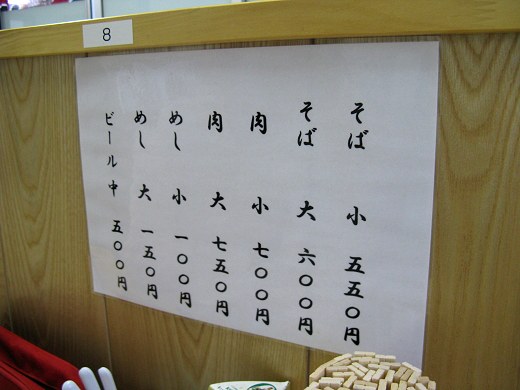 8
そば 小 五五〇円
そば 大 六〇〇円
肉 小 七〇〇円
肉 大 七五〇円
めし 小 一〇〇円
めし 大 一五〇円
ビール 中 五〇〇円